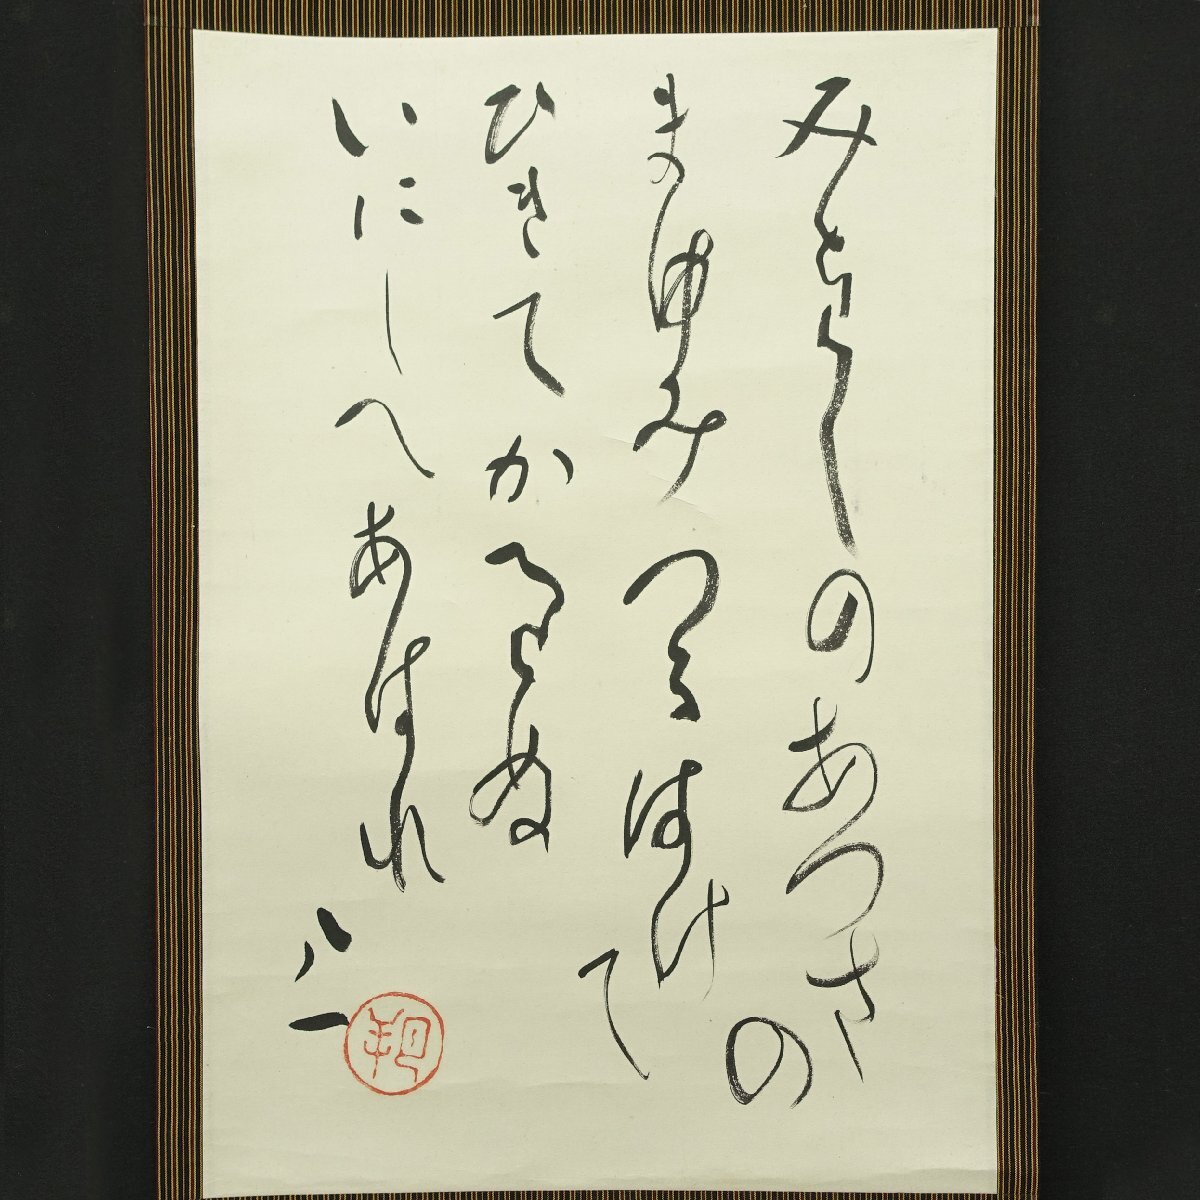 みとらしのあつさの
まゆみつるはけて
ひきてかへらぬ
いにしへあはれ
八一